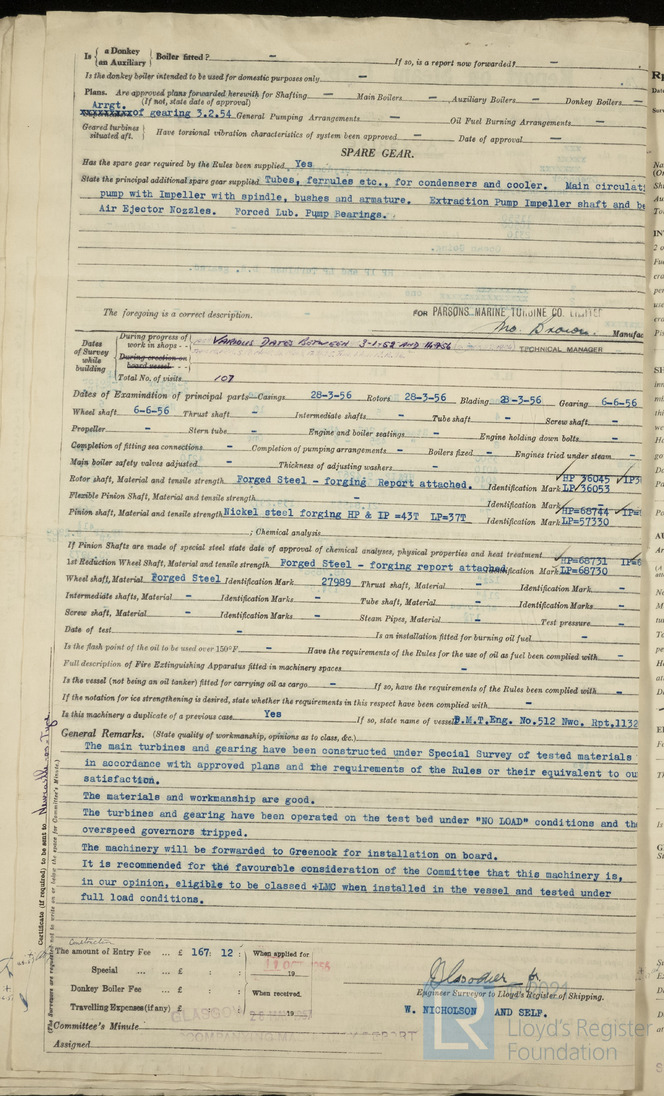 Is { a Donkey / an Auxiliary } Boiler fitted? - If so, is a report now forwarded? -
Is the donkey boiler intended to be used for domestic purposes only -
Plans. Are approved plans forwarded herewith for Shafting - Main Boilers - Auxiliary Boilers - Donkey Boilers -
(If not, state date of approval)
Arrgt. of gearing 3.2.54 General Pumping Arrangements - Oil Fuel Burning Arrangements -
Geared turbines situated aft. } Have torsional vibration characteristics of system been approved - Date of approval -
SPARE GEAR.
Has the spare gear required by the Rules been supplied Yes
State the principal additional spare gear supplied Tubes, ferrules etc., for condensers and cooler. Main circulat
pump with Impeller with spindle, bushes and armature. Extraction Pump Impeller shaft and be
Air Ejector Nozzles. Forced Lub. Pump Bearings.
The foregoing is a correct description.
FOR PARSONS MARINE TURBINE CO. LIMITED
Manufac
TECHNICAL MANAGER
Dates of Survey while building
During progress of work in shops - - VARIOUS DATES BETWEEN 3-1-52 AND
During erection on board vessel - - -
Total No. of visits 107
Dates of Examination of principal parts—Casings 28-3-56 Rotors 28-3-56 Blading 28-3-56 Gearing 6-6-56
Wheel shaft 6-6-56 Thrust shaft - Intermediate shafts - Tube shaft - Screw shaft -
Propeller - Stern tube - Engine and boiler seatings - Engine holding down bolts -
Completion of fitting sea connections - Completion of pumping arrangements - Boilers fixed - Engines tried under steam -
Main boiler safety valves adjusted - Thickness of adjusting washers -
Rotor shaft, Material and tensile strength Forged Steel - forging Report attached. Identification Mark HP 36045 IP3
LP 36053
Flexible Pinion Shaft, Material and tensile strength - Identification Mark -
Pinion shaft, Material and tensile strength Nickel steel forging HP & IP =43T LP=37T Identification Mark HP=68744 IP=
LP=57330
; Chemical analysis
If Pinion Shafts are made of special steel state date of approval of chemical analyses, physical properties and heat treatment -
1st Reduction Wheel Shaft, Material and tensile strength Forged Steel - forging report attached Identification Mark HP=68731 IP=
LP=68730
Wheel shaft, Material Forged Steel Identification Mark 27989 Thrust shaft, Material - Identification Mark -
Intermediate shafts, Material - Identification Marks - Tube shaft, Material - Identification Marks -
Screw shaft, Material - Identification Marks - Steam Pipes, Material - Test pressure -
Date of test - Is an installation fitted for burning oil fuel -
Is the flash point of the oil to be used over 150°F - Have the requirements of the Rules for the use of oil as fuel been complied with -
Full description of Fire Extinguishing Apparatus fitted in machinery spaces -
Is the vessel (not being an oil tanker) fitted for carrying oil as cargo - If so, have the requirements of the Rules been complied with -
If the notation for ice strengthening is desired, state whether the requirements in this respect have been complied with -
Is this machinery a duplicate of a previous case Yes If so, state name of vessel P.M.T.Eng. No.512 Nwc. Rpt,1132
General Remarks. (State quality of workmanship, opinions as to class, &c.)
The main turbines and gearing have been constructed under Special Survey of tested materials
in accordance with approved plans and the requirements of the Rules or their equivalent to ou
satisfaction.
The materials and workmanship are good.
The turbines and gearing have been operated on the test bed under "NO LOAD" conditions and the
overspeed governors tripped.
The machinery will be forwarded to Greenock for installation on board.
It is recommended for the favourable consideration of the Committee that this machinery is,
in our opinion, eligible to be classed +LMC when installed in the vessel and tested under
full load conditions.
Certificate (if required) to be sent to Newcastle-on-Tyne
(The Surveyors are requested not to write on or below the space for Committee's Minute.)
The amount of Entry Fee ... £ 167: 12 : When applied for
Special ... ... £ : : 19
Donkey Boiler Fee ... £ : : When received,
Travelling Expenses (if any) £ : : 19
Engineer Surveyor to Lloyd's Register of Shipping.
W. NICHOLSON AND SELF.
Committee's Minute
GLASGOW
Assigned
LR
Lloyd's Register
Foundation